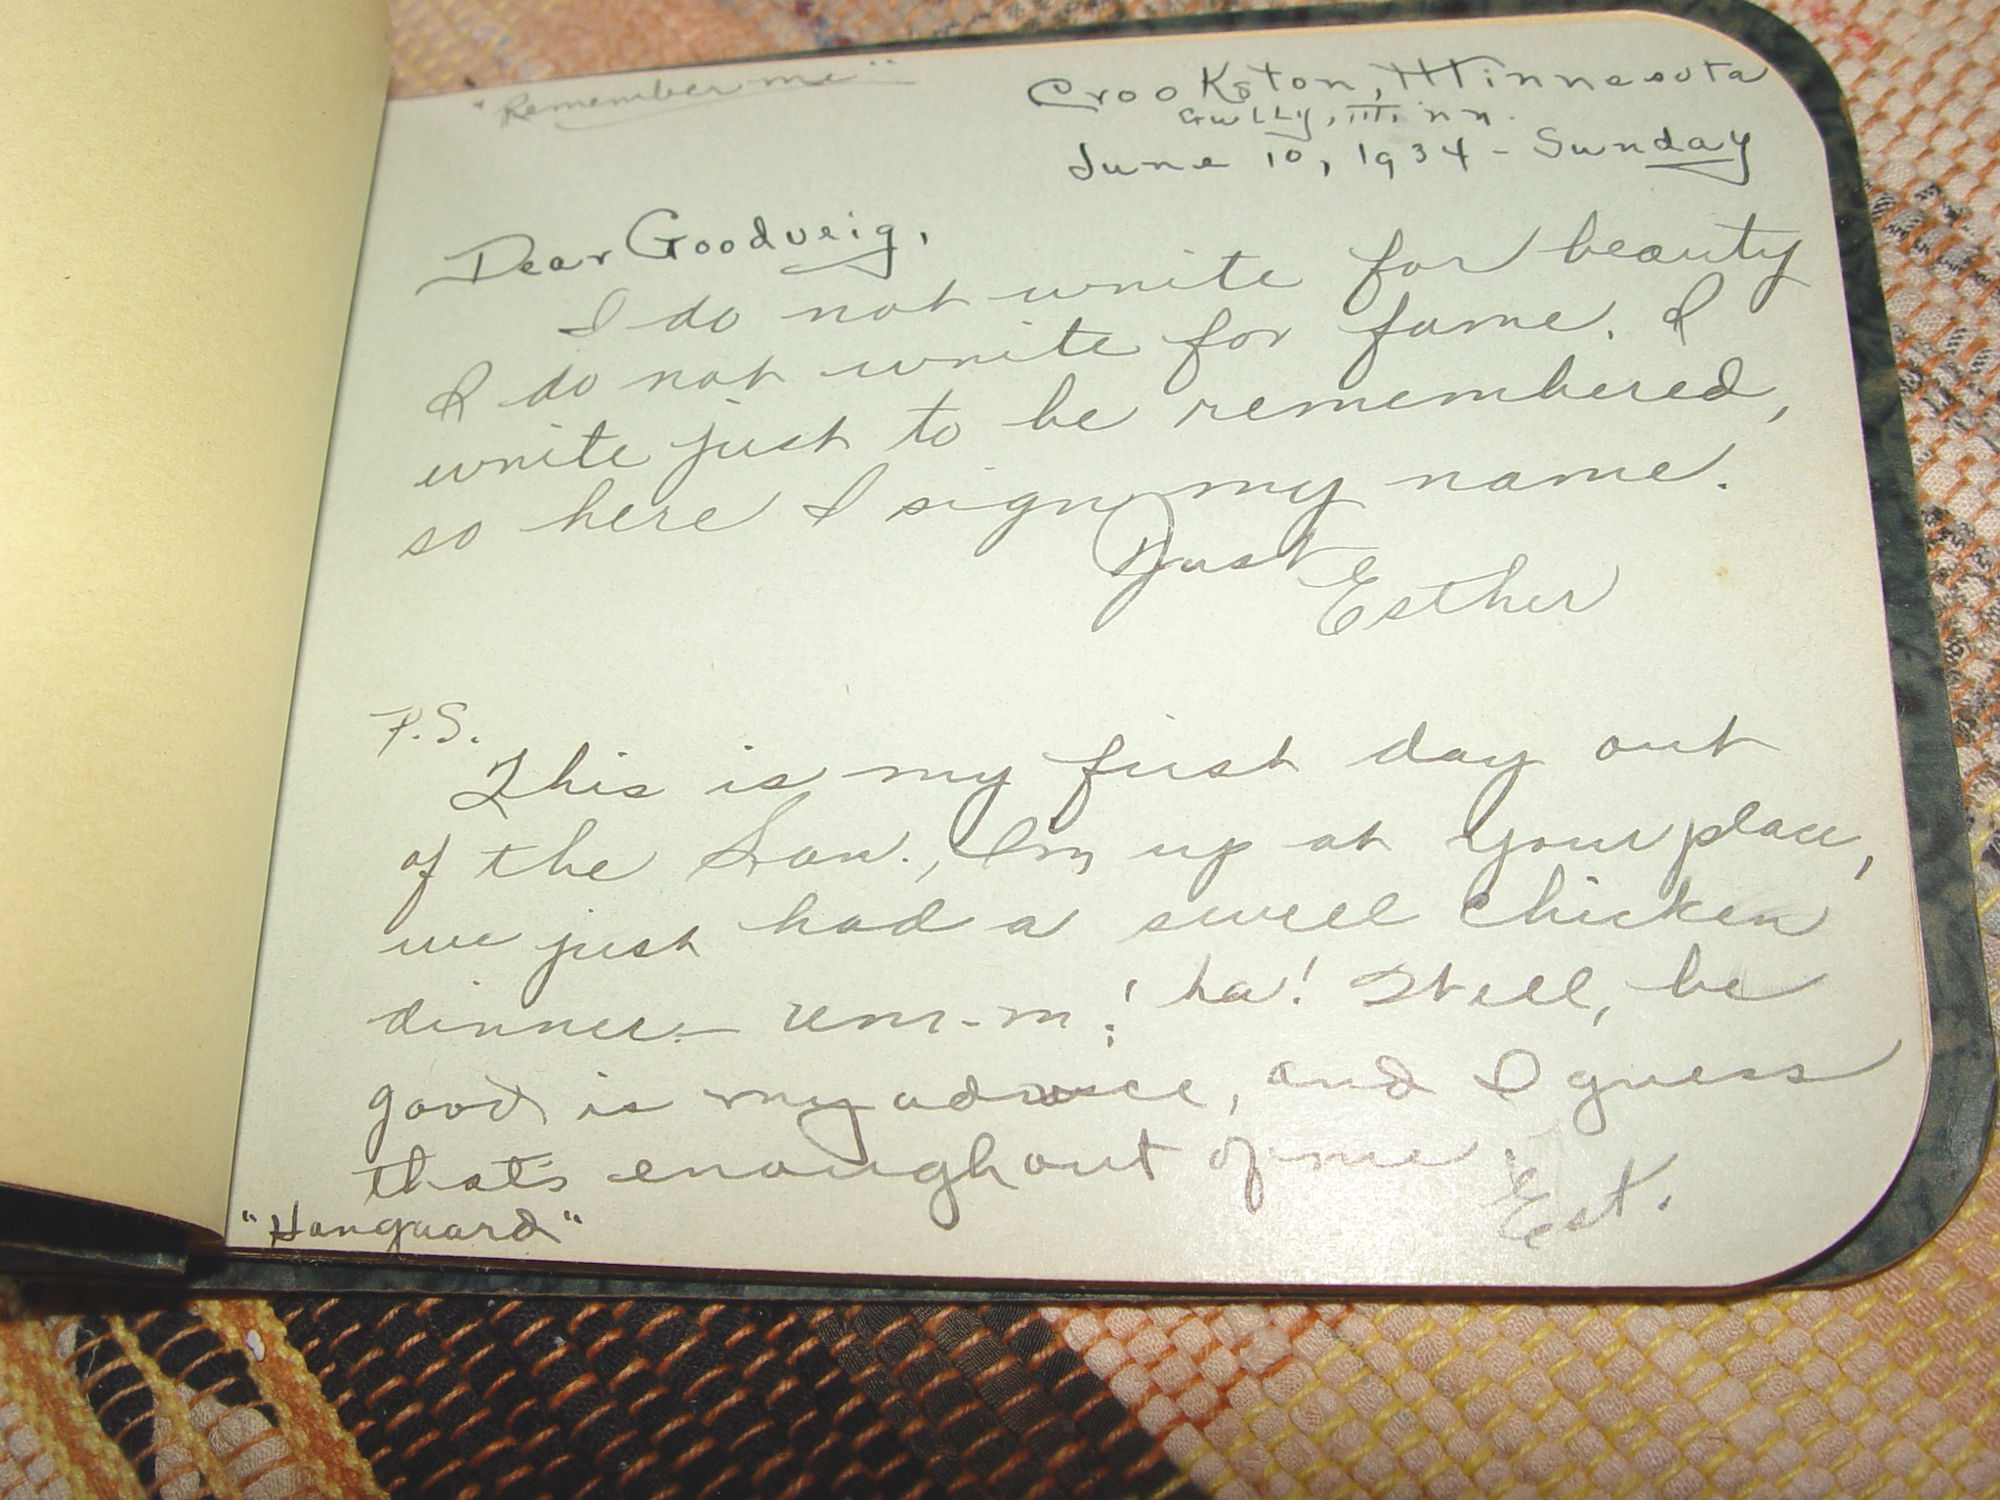 "Remember me"
Crookston, Minnesota
Gully, Minn.
June 10, 1934 - Sunday
Dear Goodveig,
I do not write for beauty
I do not write for fame. I
write just to be remembered,
so here I sign my name.
Just
Esther
P.S.
This is my first day out
of the San., I'm up at your place,
we just had a swell chicken
dinner - um-m! ha! Well, be
good is my advice, and I guess
that's enough out of me.
Est.
"Hanguard"